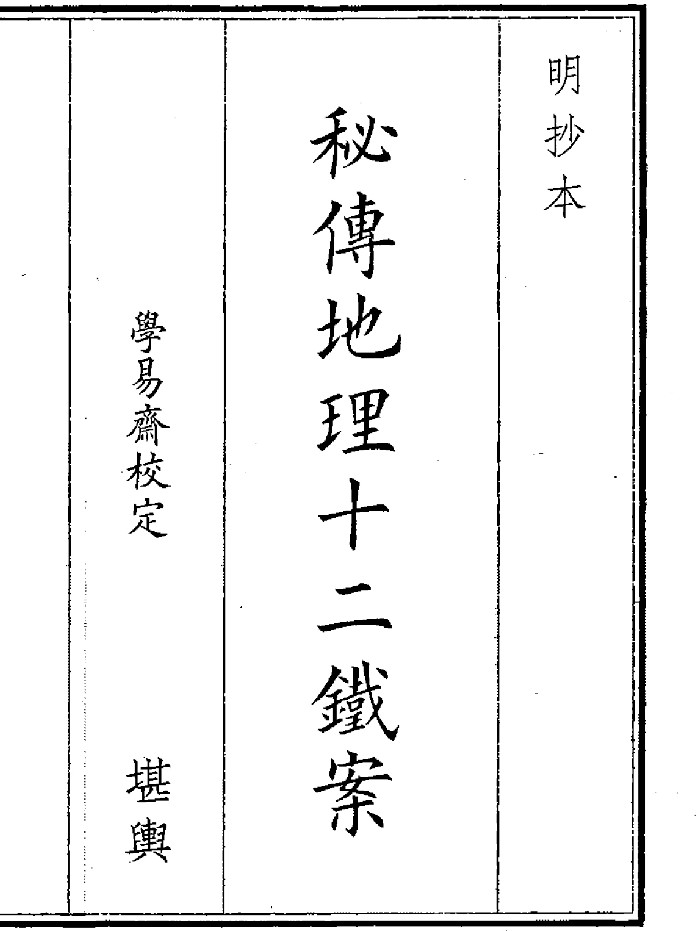 明抄本
秘傳地理十二鐵案
學易齋校定
堪輿